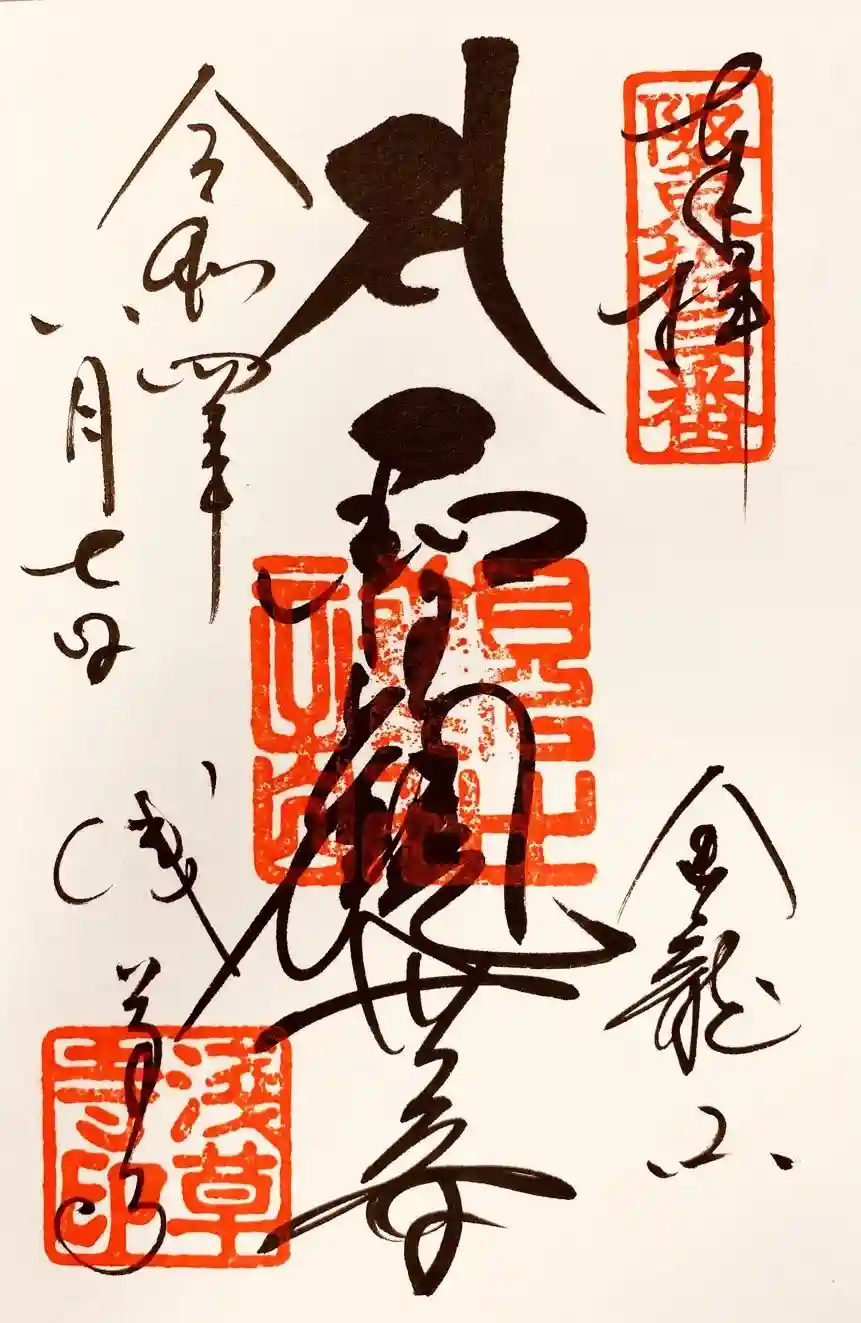 奉拝
阪東拾三番
金龍山
聖観世音
令和四年
八月七日
浅草寺
浅草
寺印